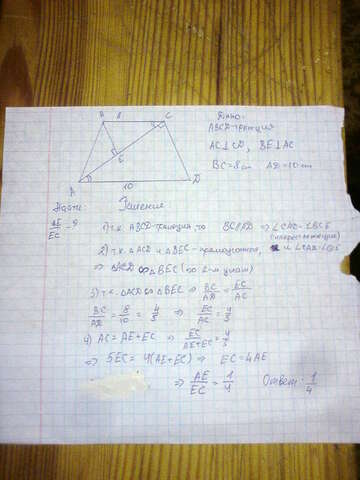 В 8 С
Дано:
ABCD-трапеция
AC⊥CD, BE⊥AC
BC=8 см AD=10 см
E
A 10 D
Найти:
Решение
AE/EC -?
1) т.к. ABCD-трапеция, то BC||AD ⇒ ∠CAD=∠BCE
(накрест лежащие)
2) т.к. △ACD и △BEC - прямоугольные, и ∠CAD=∠BCE
⇒ △ACD ∞ △BEC (по 2-м углам)
3) т.к. △ACD ∞ △BEC ⇒ BC/AD = EC/AC
BC/AD = 8/10 = 4/5 ⇒ EC/AC = 4/5
4) AC = AE+EC ⇒ EC/AE+EC = 4/5
⇒ 5EC = 4(AE+EC) ⇒ EC=4AE
⇒ AE/EC = 1/4 Ответ: 1/4